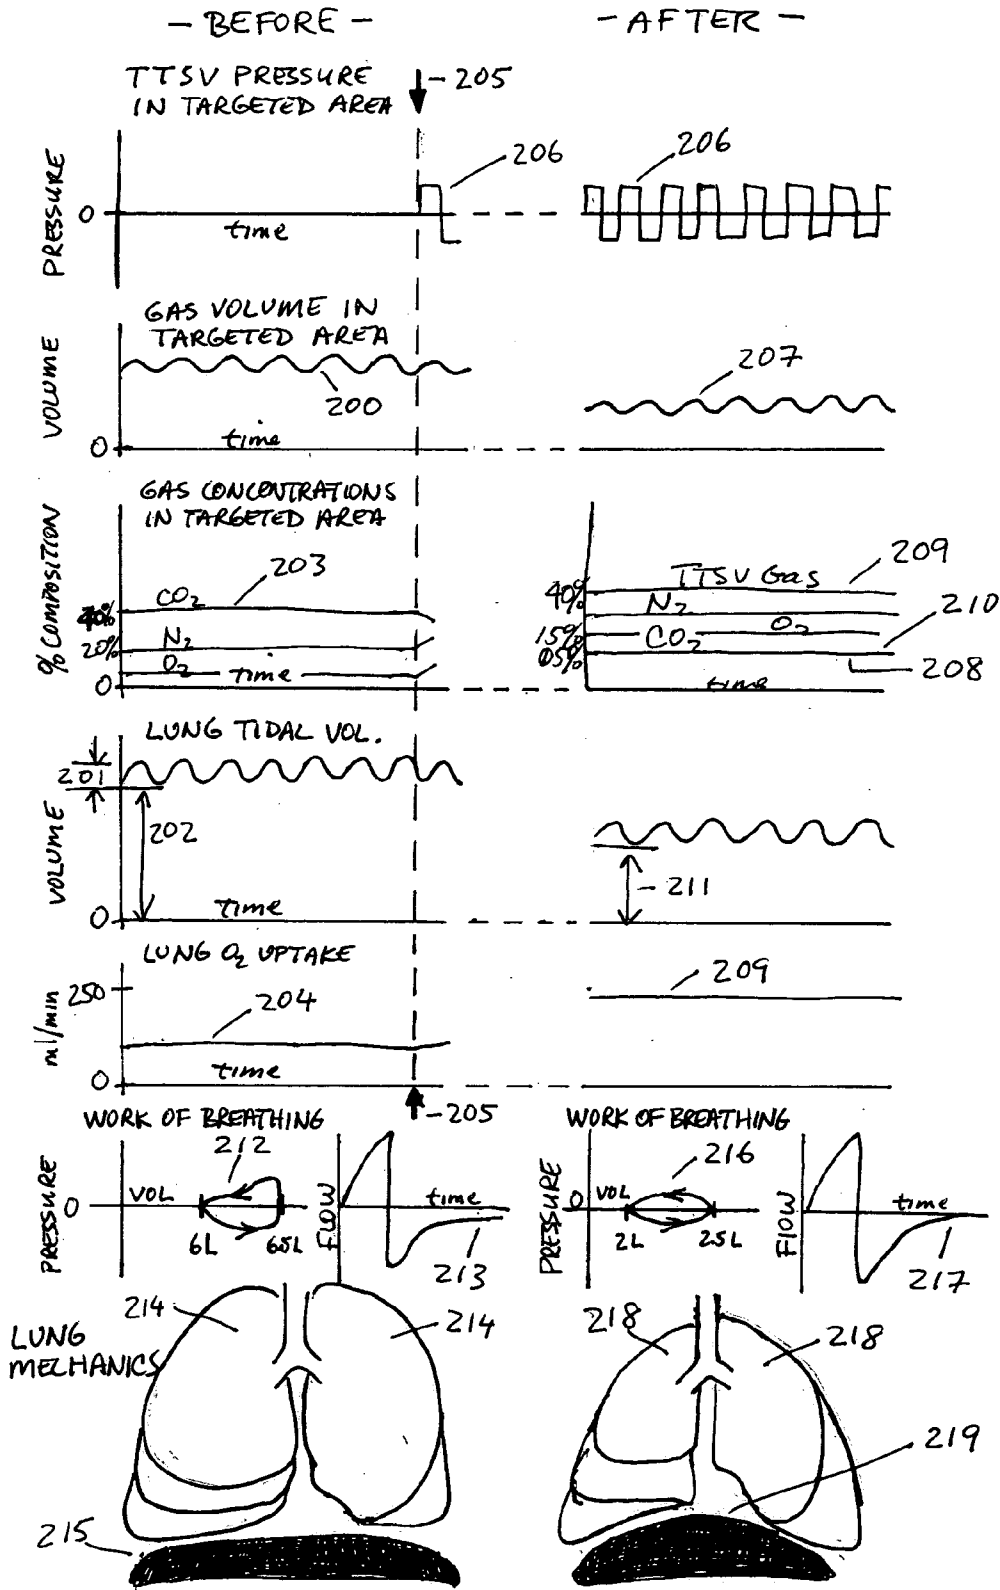 - BEFORE -
- AFTER -
TTSV PRESSURE
IN TARGETED AREA
- 205
PRESSURE
0
time
206
206
GAS VOLUME IN
TARGETED AREA
VOLUME
0
time
200
207
GAS CONCENTRATIONS
IN TARGETED AREA
% COMPOSITION
203
CO2
40%
N2
20%
O2
time
0
209
TTSV Gas
40%
N2
210
O2
15%
CO2
05%
208
time
LUNG TIDAL VOL.
201
202
VOLUME
0
time
- 211
LUNG O2 UPTAKE
ml/min
250
204
time
0
209
- 205
WORK OF BREATHING
212
PRESSURE
0
VOL
6L
6.5L
FLOW
time
213
WORK OF BREATHING
216
PRESSURE
0
VOL
2L
2.5L
FLOW
time
217
LUNG
MECHANICS
214
214
215
218
218
219